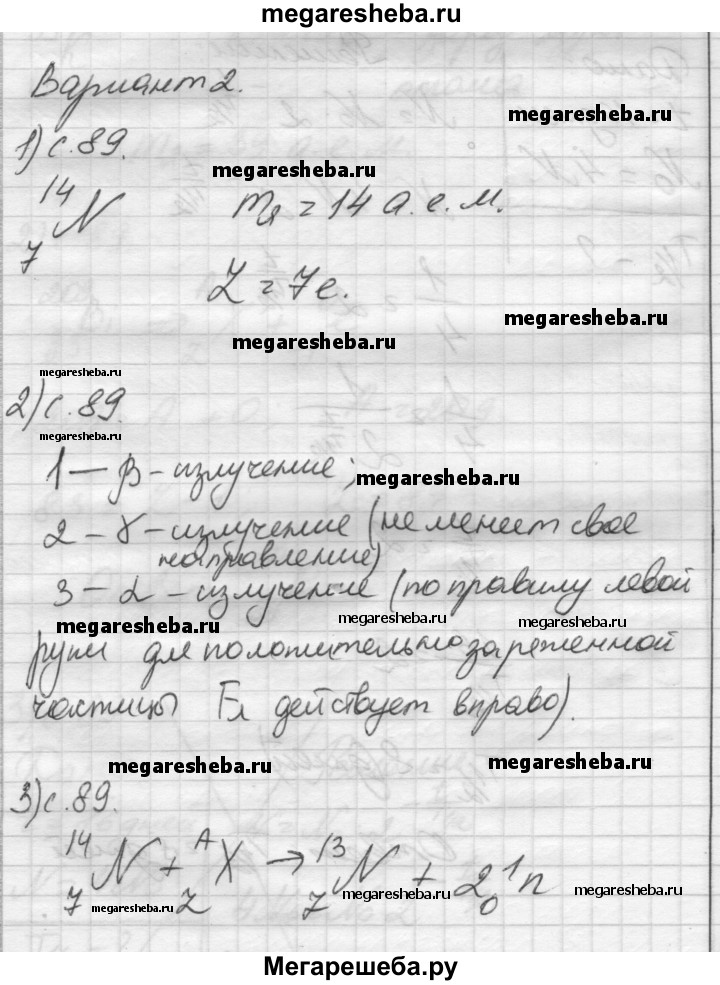 megaresheba.ru
Вариант 2.
megaresheba.ru
1) с.89.
megaresheba.ru
14 7 N mя = 14 а.е.м.
Z = 7e.
megaresheba.ru
megaresheba.ru
megaresheba.ru
2) с.89.
megaresheba.ru
1 — β - излучение;
megaresheba.ru
2 - γ - излучение (не менеет свое
направление)
3 - α - излучение (по правилу левой
megaresheba.ru megaresheba.ru megaresheba.ru
руки для положительно заряженной
частицы Fл действует вправо).
megaresheba.ru megaresheba.ru
3) с.89.
14 7 N + A Z X → 13 7 N + 2 1 0 n
megaresheba.ru megaresheba.ru megaresheba.ru
Мегарешеба.ру